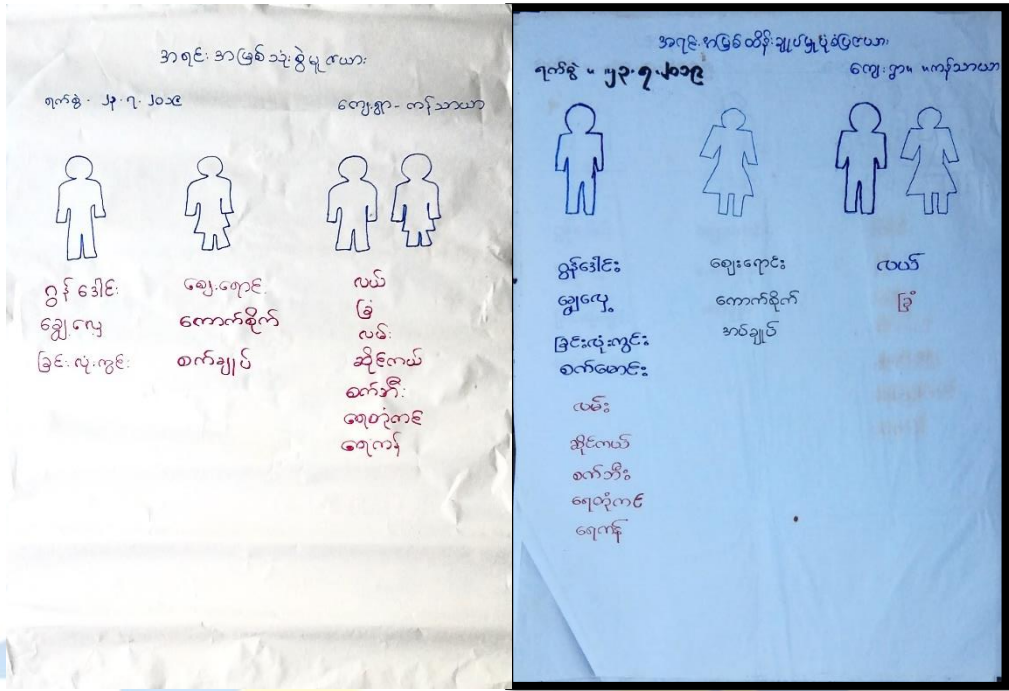 အရင်းအမြစ်သုံးစွဲမှုဇယား
ရက်စွဲ - ၂၃.၇.၂၀၁၉
ကျေးရွာ - ကန်သာယာ
ဂွန်ဒေါင်း
ချွေလှေ
ခြင်းလုံးကွင်း
ဈေးရောင်း
ကောက်စိုက်
စက်ချုပ်
လယ်
ခြံ
လမ်း
ဆိုင်ကယ်
စက်ဘီး
ရေတုံကင်
ရေကန်
အရင်းအမြစ်ထိန်းချုပ်မှုပုံစံပြဇယား
ရက်စွဲ ။ ၂၃.၇.၂၀၁၉
ကျေးရွာ။ ။ကန်သာယာ
ဂွန်ဒေါင်း
ချွေလှေ့
ခြင်းလုံးကွင်း
စက်မောင်း
လမ်း
ဆိုင်ကယ်
စက်ဘီး
ရေတုံကင်
ရေကန်
ဈေးရောင်း
ကောက်စိုက်
အပ်ချုပ်
လယ်
ခြံ